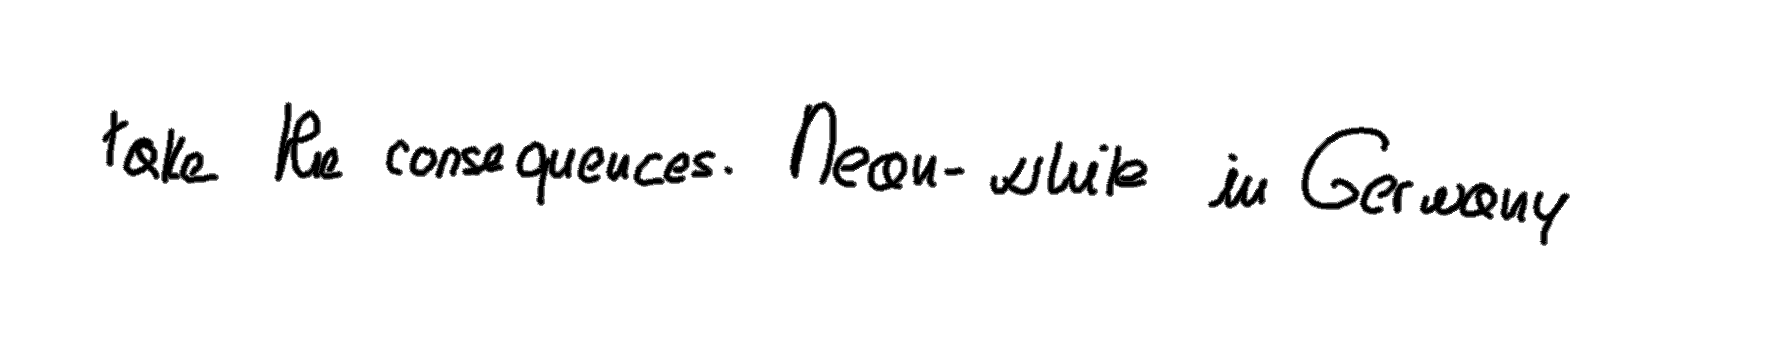 take the consequences. Mean-while in Germany